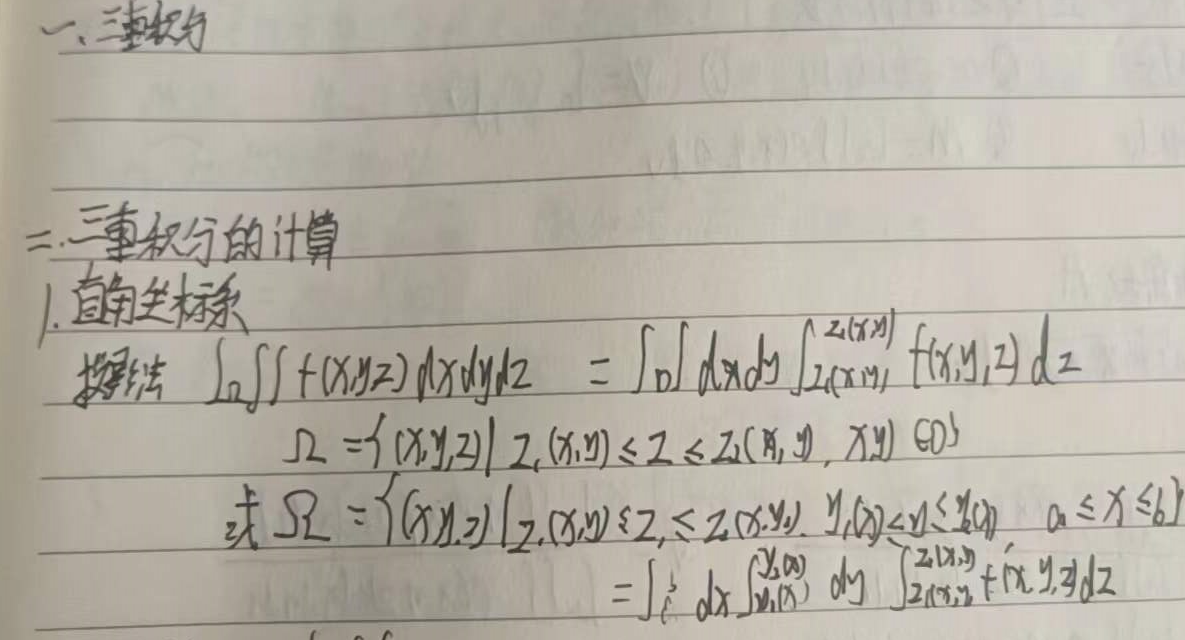 一、三重积分
二.三重积分的计算
1.直角坐标系
投影法 ∫Ω∫∫ f(x,y,z) dxdydz = ∫D∫ dxdy ∫_{z₁(x,y)}^{z₂(x,y)} f(x,y,z) dz
Ω = {(x,y,z) | z₁(x,y) ≤ z ≤ z₂(x,y), x,y) ∈D}
或 Ω = {(x,y,z) | z₁(x,y) ≤ z ≤ z₂(x,y), y₁(x) ≤ y ≤ y₂(x), a ≤ x ≤ b}
= ∫ dx ∫_{y₁(x)}^{y₂(x)} dy ∫_{z₁(x,y)}^{z₂(x,y)} f(x,y,z) dz